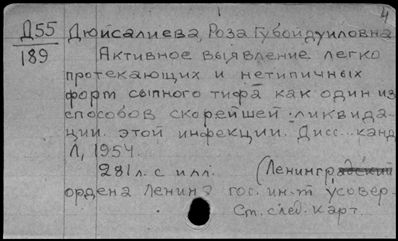 4
Д55 Дюйсалиева, Роза Губойдуиловна
189 Активное выявление легко
протекающих и нетипичных
форт сыпного тифа как один из
способов скорейшей ликвида-
ции этой инфекции. Дисс... канд
Л, 1954.
281 л. с илл. (Ленинградский
ордена Ленина гос. ин-т усовер.
Ст. след. карт.